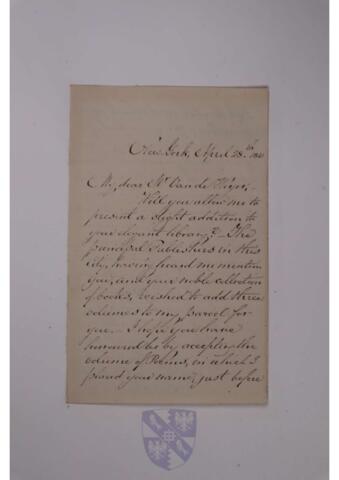 New York, April 28th
My dear Mr Van de Weyer,-
Will you allow me to
present a slight addition to
your elegant library? - The
principal Publishers in this
city, having heard me mention
you, and your noble collection
of books, wished to add three
volumes to my parcel for
you. - I hope you have
honoured me by accepting the
volume of Poems, in which I
placed your name, just before